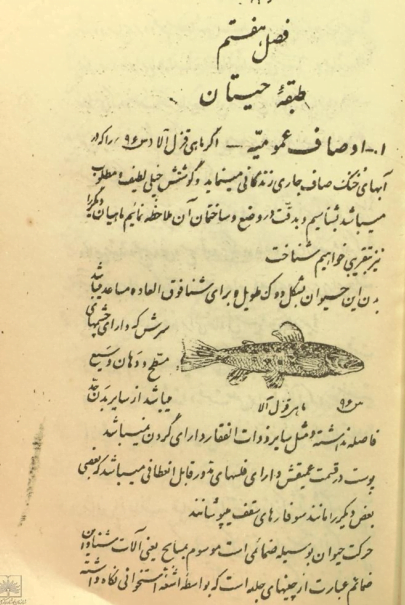 فصل هفتم
طبقهٔ حیتان
۱.- اوصاف عمومیّه — اگر ماهی قزل آلا (س ۹۶) را که در
آبهای خنک صاف جاری زندگانی مینماید و گوشتش خیلی لطیف و مطلوب
میباشد بشناسیم و بدقّت در وضع و ساختمان آن ملاحظه نمائیم ماهیان دیگر را
نیز بتقریبی خواهیم شناخت
بدن این حیوان بشکل دوکی طویل و برای شنا فوق العاده مساعد میباشد
سرش که دارای چشمهای
مسطح و دهان وسیع
میباشد از سایر بدن حدّ
س ۹۶ ماهی قزل آلا
فاصله نداشته و مثل سایر ذوات الفقار دارای گردن نمیباشد
پوست در قسمت عمیقش دارای فلسهای مدور قابل انعطافی میباشد که بعضی
بعض دیگر را مانند سوفارهای سقف میپوشانند
حرکت حیوان بوسیله ضمائمی است موسوم بمسابح یعنی آلات شناو این
ضمائم عبارت از چینهای جلد است که بواسطه اشعّه استخوانی نگاه داشته